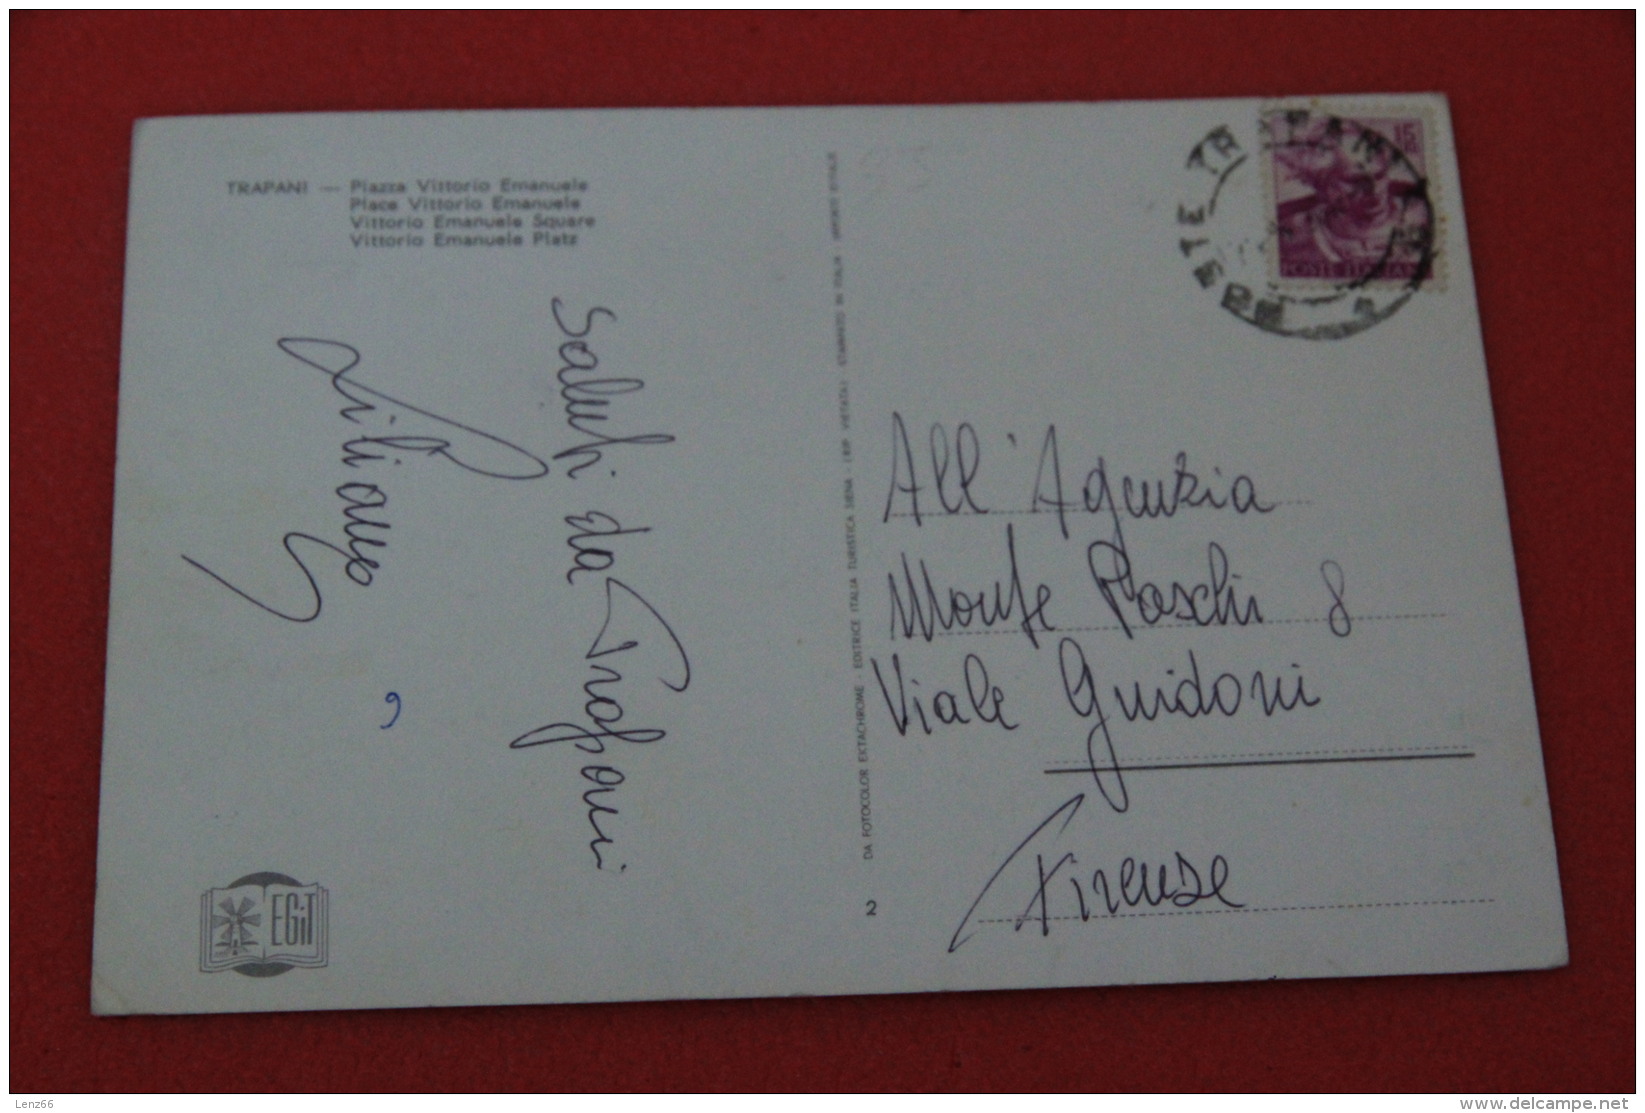 TRAPANI — Piazza Vittorio Emanuele
Place Vittorio Emanuele
Vittorio Emanuele Square
Vittorio Emanuele Platz
Saluti da Trapani
EGIT
DA FOTOCOLOR EKTACHROME - EDITRICE ITALIA TURISTICA SIENA - (RIP. VIETATA) STAMPATO IN ITALIA
2
15
POSTE ITALIANE
TRAPANI
All'Agenzia
Monte Paschi 8
Viale Guidoni
Firenze
Lenz66
www.delcampe.net